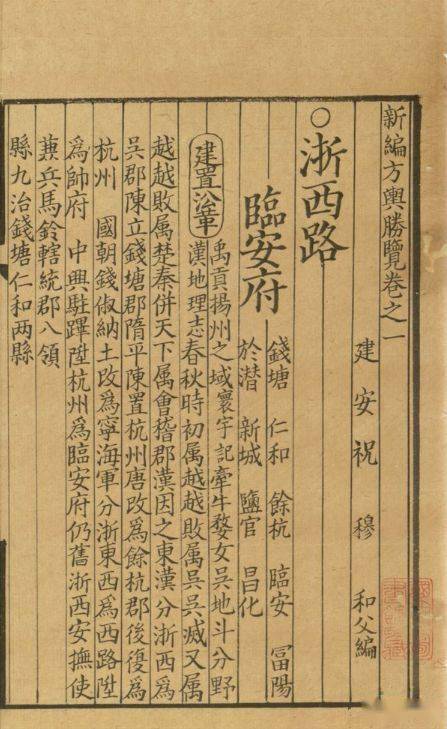 新編方輿勝覽卷之一
建安祝穆 和父編
○浙西路
臨安府
錢塘 仁和 餘杭 臨安 冨陽
於潜 新城 鹽官 昌化
建置沿革
禹貢揚州之域寰宇記牽牛婺女吳地斗分野
漢地理志春秋時初属越越敗属吳吳滅又属
越越敗属楚秦併天下属會稽郡漢因之東漢分浙西爲
吳郡陳立錢塘郡隋平陳置杭州唐改爲餘杭郡後復爲
杭州 國朝錢俶納土改爲寧海軍分浙東西爲西路陞
爲帥府 中興駐蹕陞杭州爲臨安府仍舊浙西安撫使
兼兵馬鈐轄統郡八領
縣九治錢塘仁和兩縣